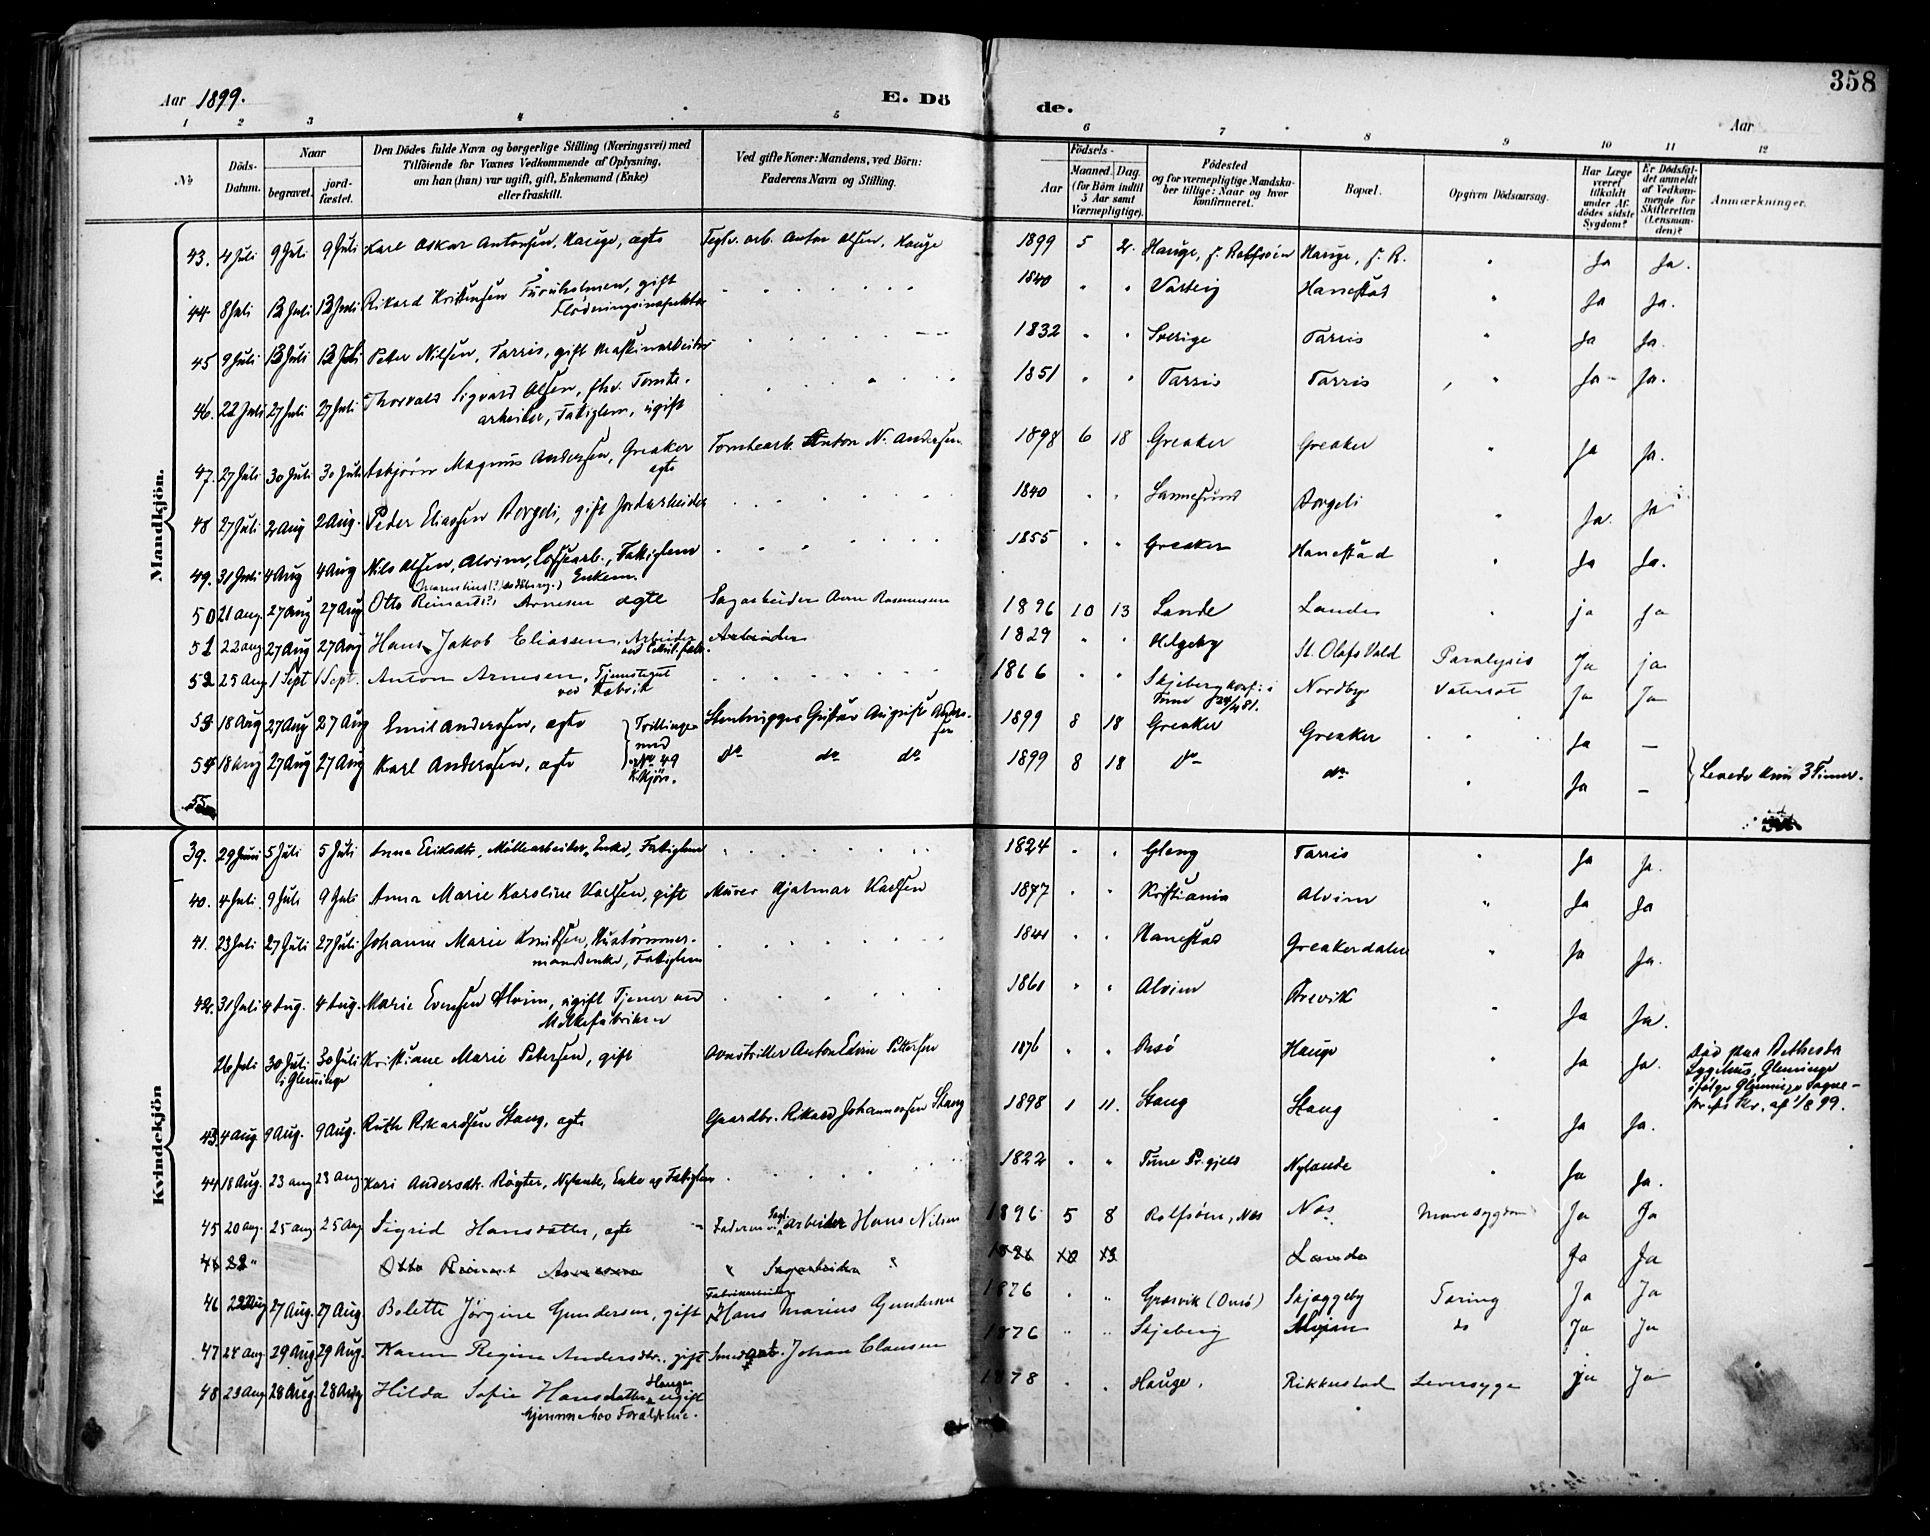 358
Aar 1899.
E. Döde.
Aar
1 2 3 4 5 6 7 8 9 10 11 12
No
Döds-Datum.
Naar
begravet.
jordfæstet.
Den Dödes fulde Navn og borgerlige Stilling (Næringsvei) med
Tilföiende for Voxnes Vedkommende af Oplysning,
om han (hun) var ugift, gift, Enkemand (Enke)
eller fraskilt.
Ved gifte Koner: Mandens, ved Börn:
Faderens Navn og Stilling.
Födsels-
Aar
Maaned. Dag.
(for Börn indtil
5 Aar samt
Værnepligtige).
Födested
og for værnepligtige Mandska-
ber tillige: Naar og hvor
konfirmeret.
Bopæl.
Opgiven Dödsaarsag.
Har Læge
været
tilkaldt
under Af-
dödes sidste
Sygdom?
Er Dödsfal-
det anmeldt
af Vedkom-
mende for
Skifteretten
(Lensman-
den)?
Anmærkninger.
Mandkjön.
43. 4 Juli 9 Juli 9 Juli Karl Oskar Antonsen, Hauge, ægte Teglv. arb. Anton Olsen, Hauge 1899 5 2. Hauge, i Rolfsöen Hauge, i R. " Ja Ja.
44 8 Juli 13 Juli 13 Juli Rikard Kristensen Furuholmen, gift
Flödningsinspektør 1840 " " Varteig Hanestad " Ja Ja.
45 9 Juli 13 Juli 13 Juli Peter Nilsen, Tarris, gift Maskinarbeider 1832 " " Sverige Tarris " Ja Ja.
46. 22 Juli 27 Juli 27 Juli Thorvald Sigvard Olsen, fhv. Tomte-
arbeider, Fattiglem, ugift 1851 " " Tarris Tarris " Ja Ja.
47. 27 Juli 30 Juli 30 Juli Asbjörn Magnus Andersen, Greaker
ægte Tomtearb. Anton N. Andersen 1898 6 18 Greaker Greaker " Ja Ja.
48 27 Juli 2 Aug 2 Aug. Peder Eliassen Borgeli, gift Jordarbeider 1840 " " Sannesund Borgeli " Ja. Ja
49. 31 Juli 4 Aug 4 Aug Nils Olsen, Alvim, Lossearb., Fattiglem
Enkem. 1855 " " Greaker Hanestad " Ja Ja.
50 21 aug 27 Aug 27 Aug Otto Reinards Arnesen ægte Sagarbeider Arne Rasmussen 1896 10 13 Lande Lande " ja ja
51 22 aug 27 Aug 27 Aug Hans Jakob Eliassen, Arbeider
ved Cellul.fabr. Arbeider 1829 " " Helgeby St. Olafs Vold Paralysis Ja ja
52 25 Aug 1 Sept 1 Sept. Anton Arnesen, Tjenstegut
ved Fabrik 1866 " " Skjeberg konf: i
Tune Nordby Vatersot Ja Ja
53 18 Aug 27 Aug 27 Aug Emil Anderssen, ægte Trillinger
med
No 49
K.kjön. Stenhugger Gustav August Anders-
sen 1899 8 18 Greaker Greaker " Ja —
54 18 Aug 27 Aug 27 Aug Karl Anderssen, ægte do do do 1899 8 18 do do " Ja — Levede kun 3 Timer.
55
Kvindekjön
39. 29 Juni 5 Juli 5 Juli Anna Eriksdtr, Möllearbeider Enke, Fattiglem 1824 " " Gleng Tarris " Ja Ja.
40. 4 Juli 9 Juli 9 Juli Anna Marie Karoline Karlsen, gift Murer Hjalmar Karlsen 1877 " " Kristiania Alvim " Ja Ja
41. 23 Juli 27 Juli 27 Juli Johanne Marie Knudsen, Hustömmer-
mandsenke, Fattiglem 1841 " " Hanestad Greakerdalen " Ja Ja.
42. 31 Juli 4 Aug. 4 Aug. Marie Evensen Alvim, ugift Tjener ved
Melkefabriken 1861 " " Alvim Brevik " Ja Ja.
26 Juli 30 Juli
i Glemminge 30 Juli Kristiane Marie Petersen, gift Anton Edvin Pettersen 1876 " " Onsö Hauge " Ja Ja. Död paa Bethesda
Sygehus, Glemminge
ifölge Glemminge Sogne-
prests Skr. af 1/8 99.
43 4 Aug 9 Aug. 9 Aug. Ruth Rikardsen Stang, ægte Gaardbr. Rikard Johannesen Stang 1898 1 11. Stang Stang " Ja Ja.
44 18 Aug. 23 aug 23 aug Kari Andersdtr. Røgter, Nylande, Enke og Fattiglem 1822 " " Tune Pr.gjeld Nylande " Ja Ja.
45 20 aug. 25 aug 25 Aug Sigrid Hansdatter, ægte Faderen Tegl.arbeider Hans Nilsen 1896 5 8 Rolfsöen, Næs Næs Mavesygdom Ja Ja
22 " Otto Reinart Arnesen " Sagarbeider " 1896 10 13 Lande Ja Ja
46 22 Aug 27 Aug. 27 Aug. Bolette Jörgine Gundersen, gift Fabrikarbeider
Hans Marius Gundersen 1876 " " Græsvik (Onsö) Skjæggeby Tæring Ja Ja
47 24 aug 29 Aug 29 Aug. Karen Regine Andersdtr. gift Johan Clausen 1876 " " Skjeberg Alvim do Ja Ja
48 23 Aug 28 Aug. 28 Aug Hilda Sofie Hansdatter Haugen ugift
hjemme hos Forældrene. 1878 " " Hauge, Rikkestad Leversyge Ja Ja